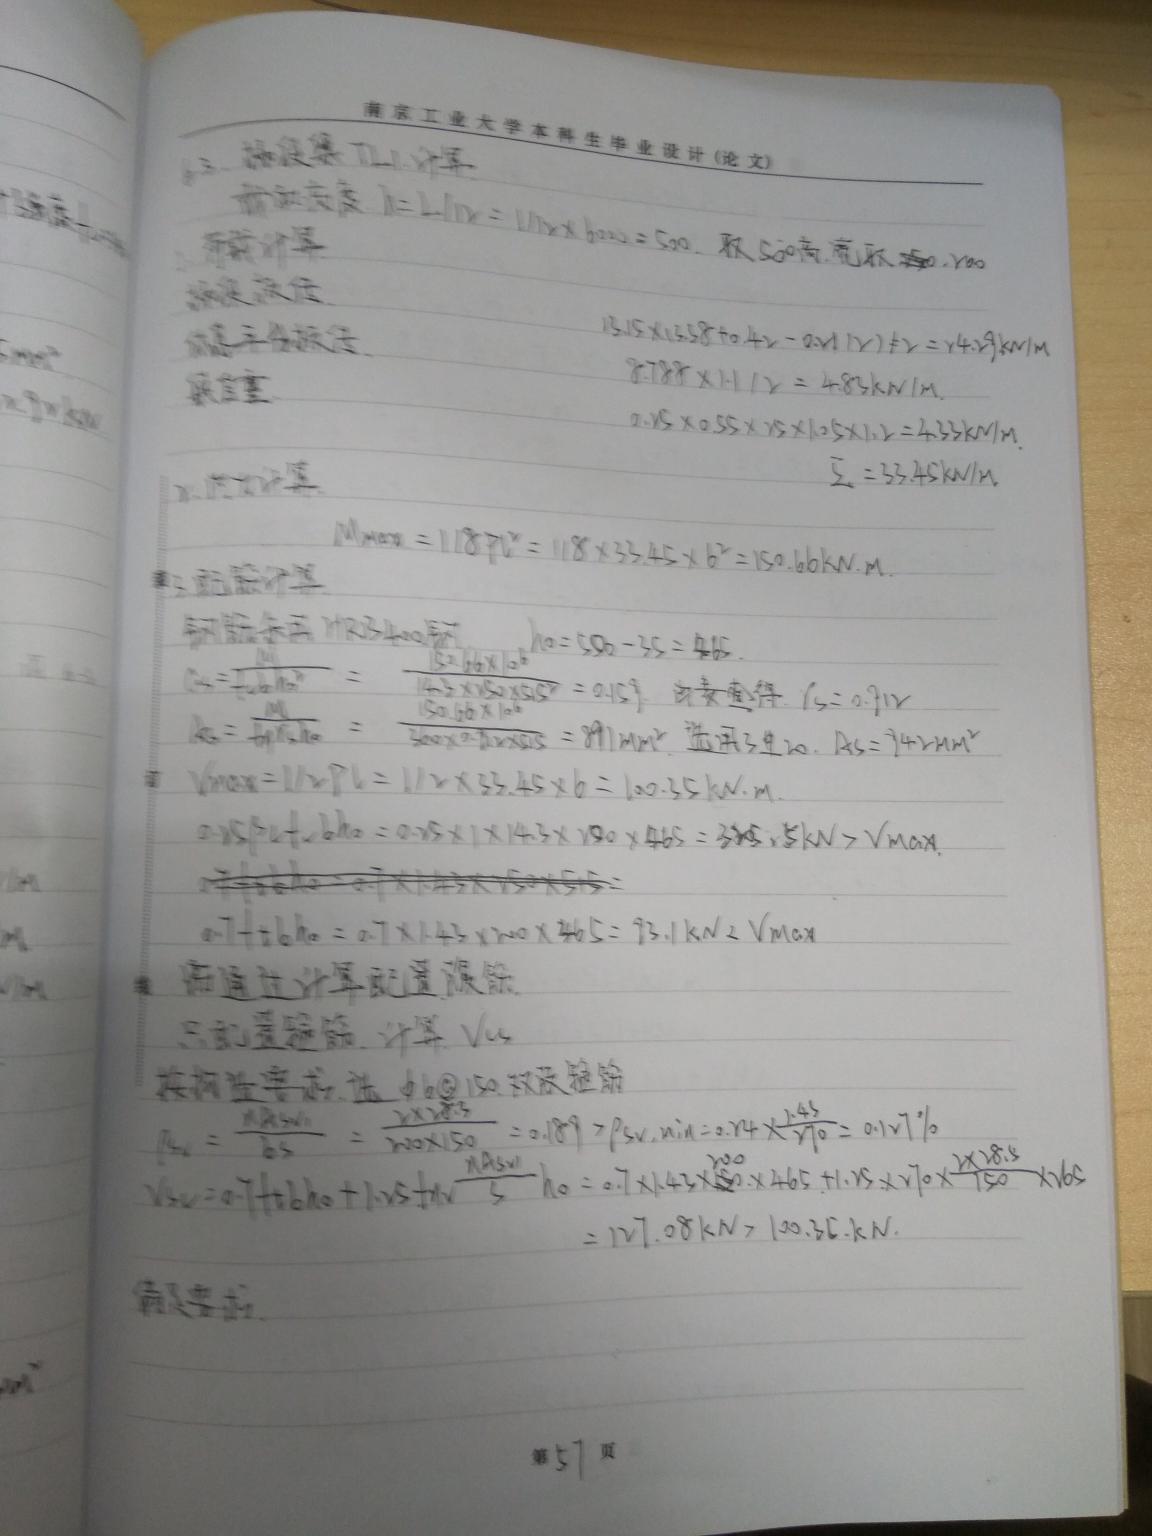 南京工业大学本科生毕业设计(论文)
6.3. 梯段梁TL1计算
截面高度 h=L/12=1/12×6000=500. 取500高.宽取200
荷载计算
梯段板传
13.15×(3.58+0.42-0.2/12)÷2=24.29kN/M
休息平台板传
8.788×1.1/2=4.83kN/M.
梁自重
0.25×0.55×25×1.05×1.2=4.33kN/M.
Σ=33.45kN/M
2.内力计算
Mmax=1/8PL²=1/8×33.45×6²=150.66kN.M.
三配筋计算
钢筋采用HRB400钢 h0=500-35=465.
αs=M/fcbh0²=150.66×10⁶/14.3×250×515²=0.159. 由表查得 γs=0.912
As=M/fyγsh0=150.66×10⁶/360×0.912×515=891MM² 选用3业20. AS=942MM²
Vmax=1/2PL=1/2×33.45×6=100.35kN.M.
0.25βcfcbh0=0.25×1×14.3×200×465=325.5kN>Vmax.
0.7ftbh0=0.7×1.43×250×515=
0.7ftbh0=0.7×1.43×200×465=93.1kN<Vmax
需通过计算配置腹筋.
只配置箍筋.计算Vcs
按构造要求.选ϕ6@150.双肢箍筋
ρsv=nAsv1/bs=2×28.3/200×150=0.189>ρsv.min=0.24×1.43/270=0.127%
Vsv=0.7ftbh0+1.25fyv nAsv1/s h0=0.7×1.43×200×465+1.25×270×2×28.3/150×265
=127.08kN>100.35.kN.
满足要求.
第57页